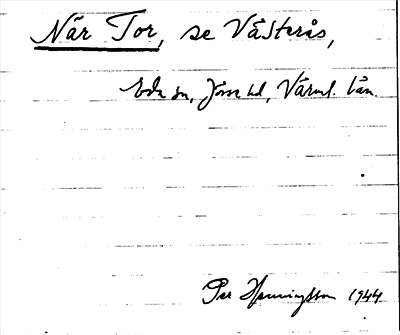 När Tor, se Västerås,
Eda sn, Jösse hd, Värml. län.
Per Henningsson 1944